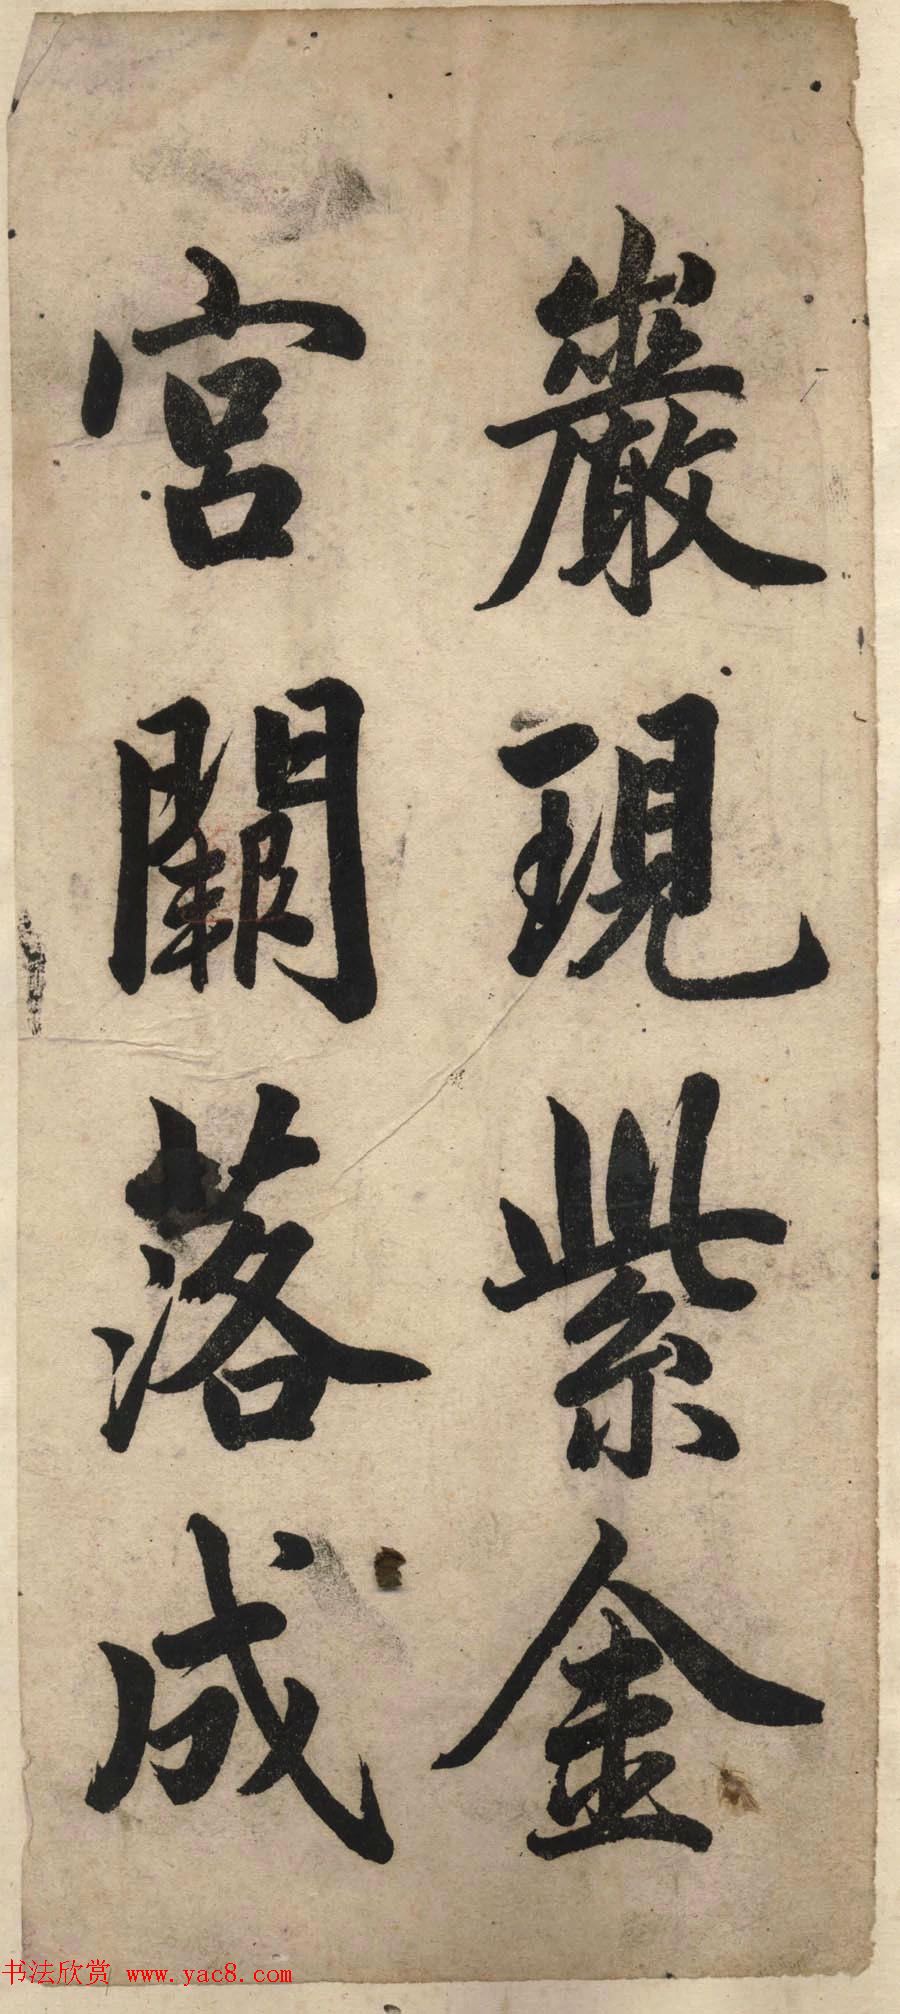 巖現紫金
宮闕落成
书法欣赏 www.yac8.com